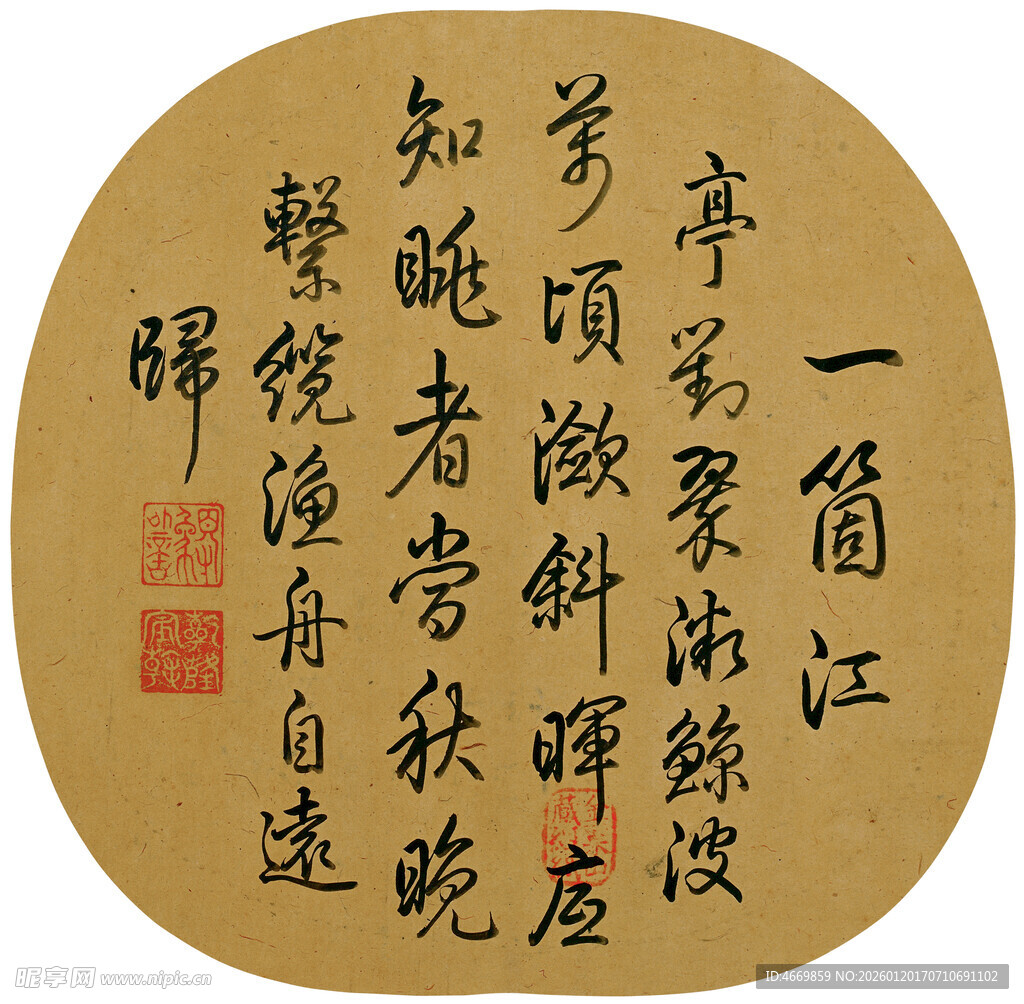 一箇江
亭對翠漪鯨波
萬頃瀲斜暉應
知眺者當秋晚
繫纜漁舟自遠
歸
乾隆
宸翰
昵享网 www.nipic.cn
ID:4669859 NO:20260120170710691102